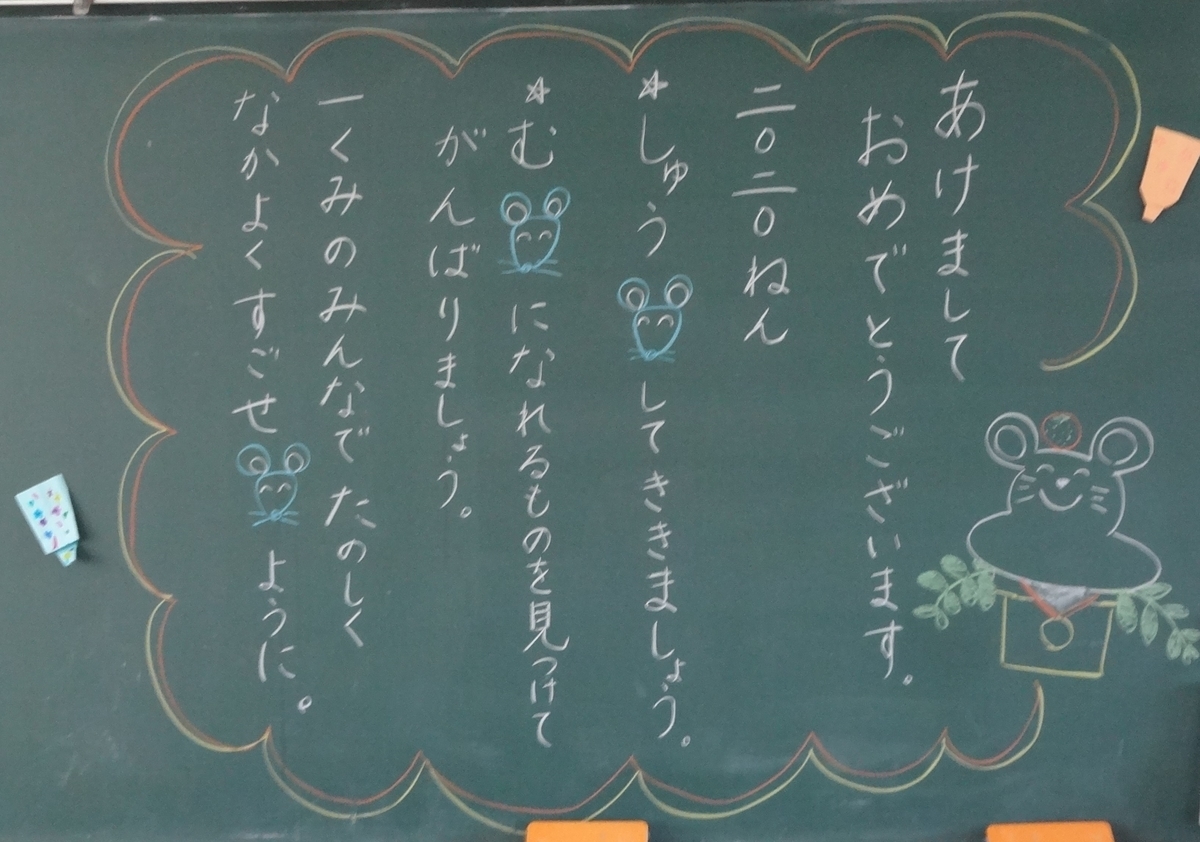 あけまして
おめでとうございます。
二〇二〇ねん
☆しゅう してききましょう。
☆む になれるものを見つけて
がんばりましょう。
一くみのみんなで たのしく
なかよくすごせ ように。